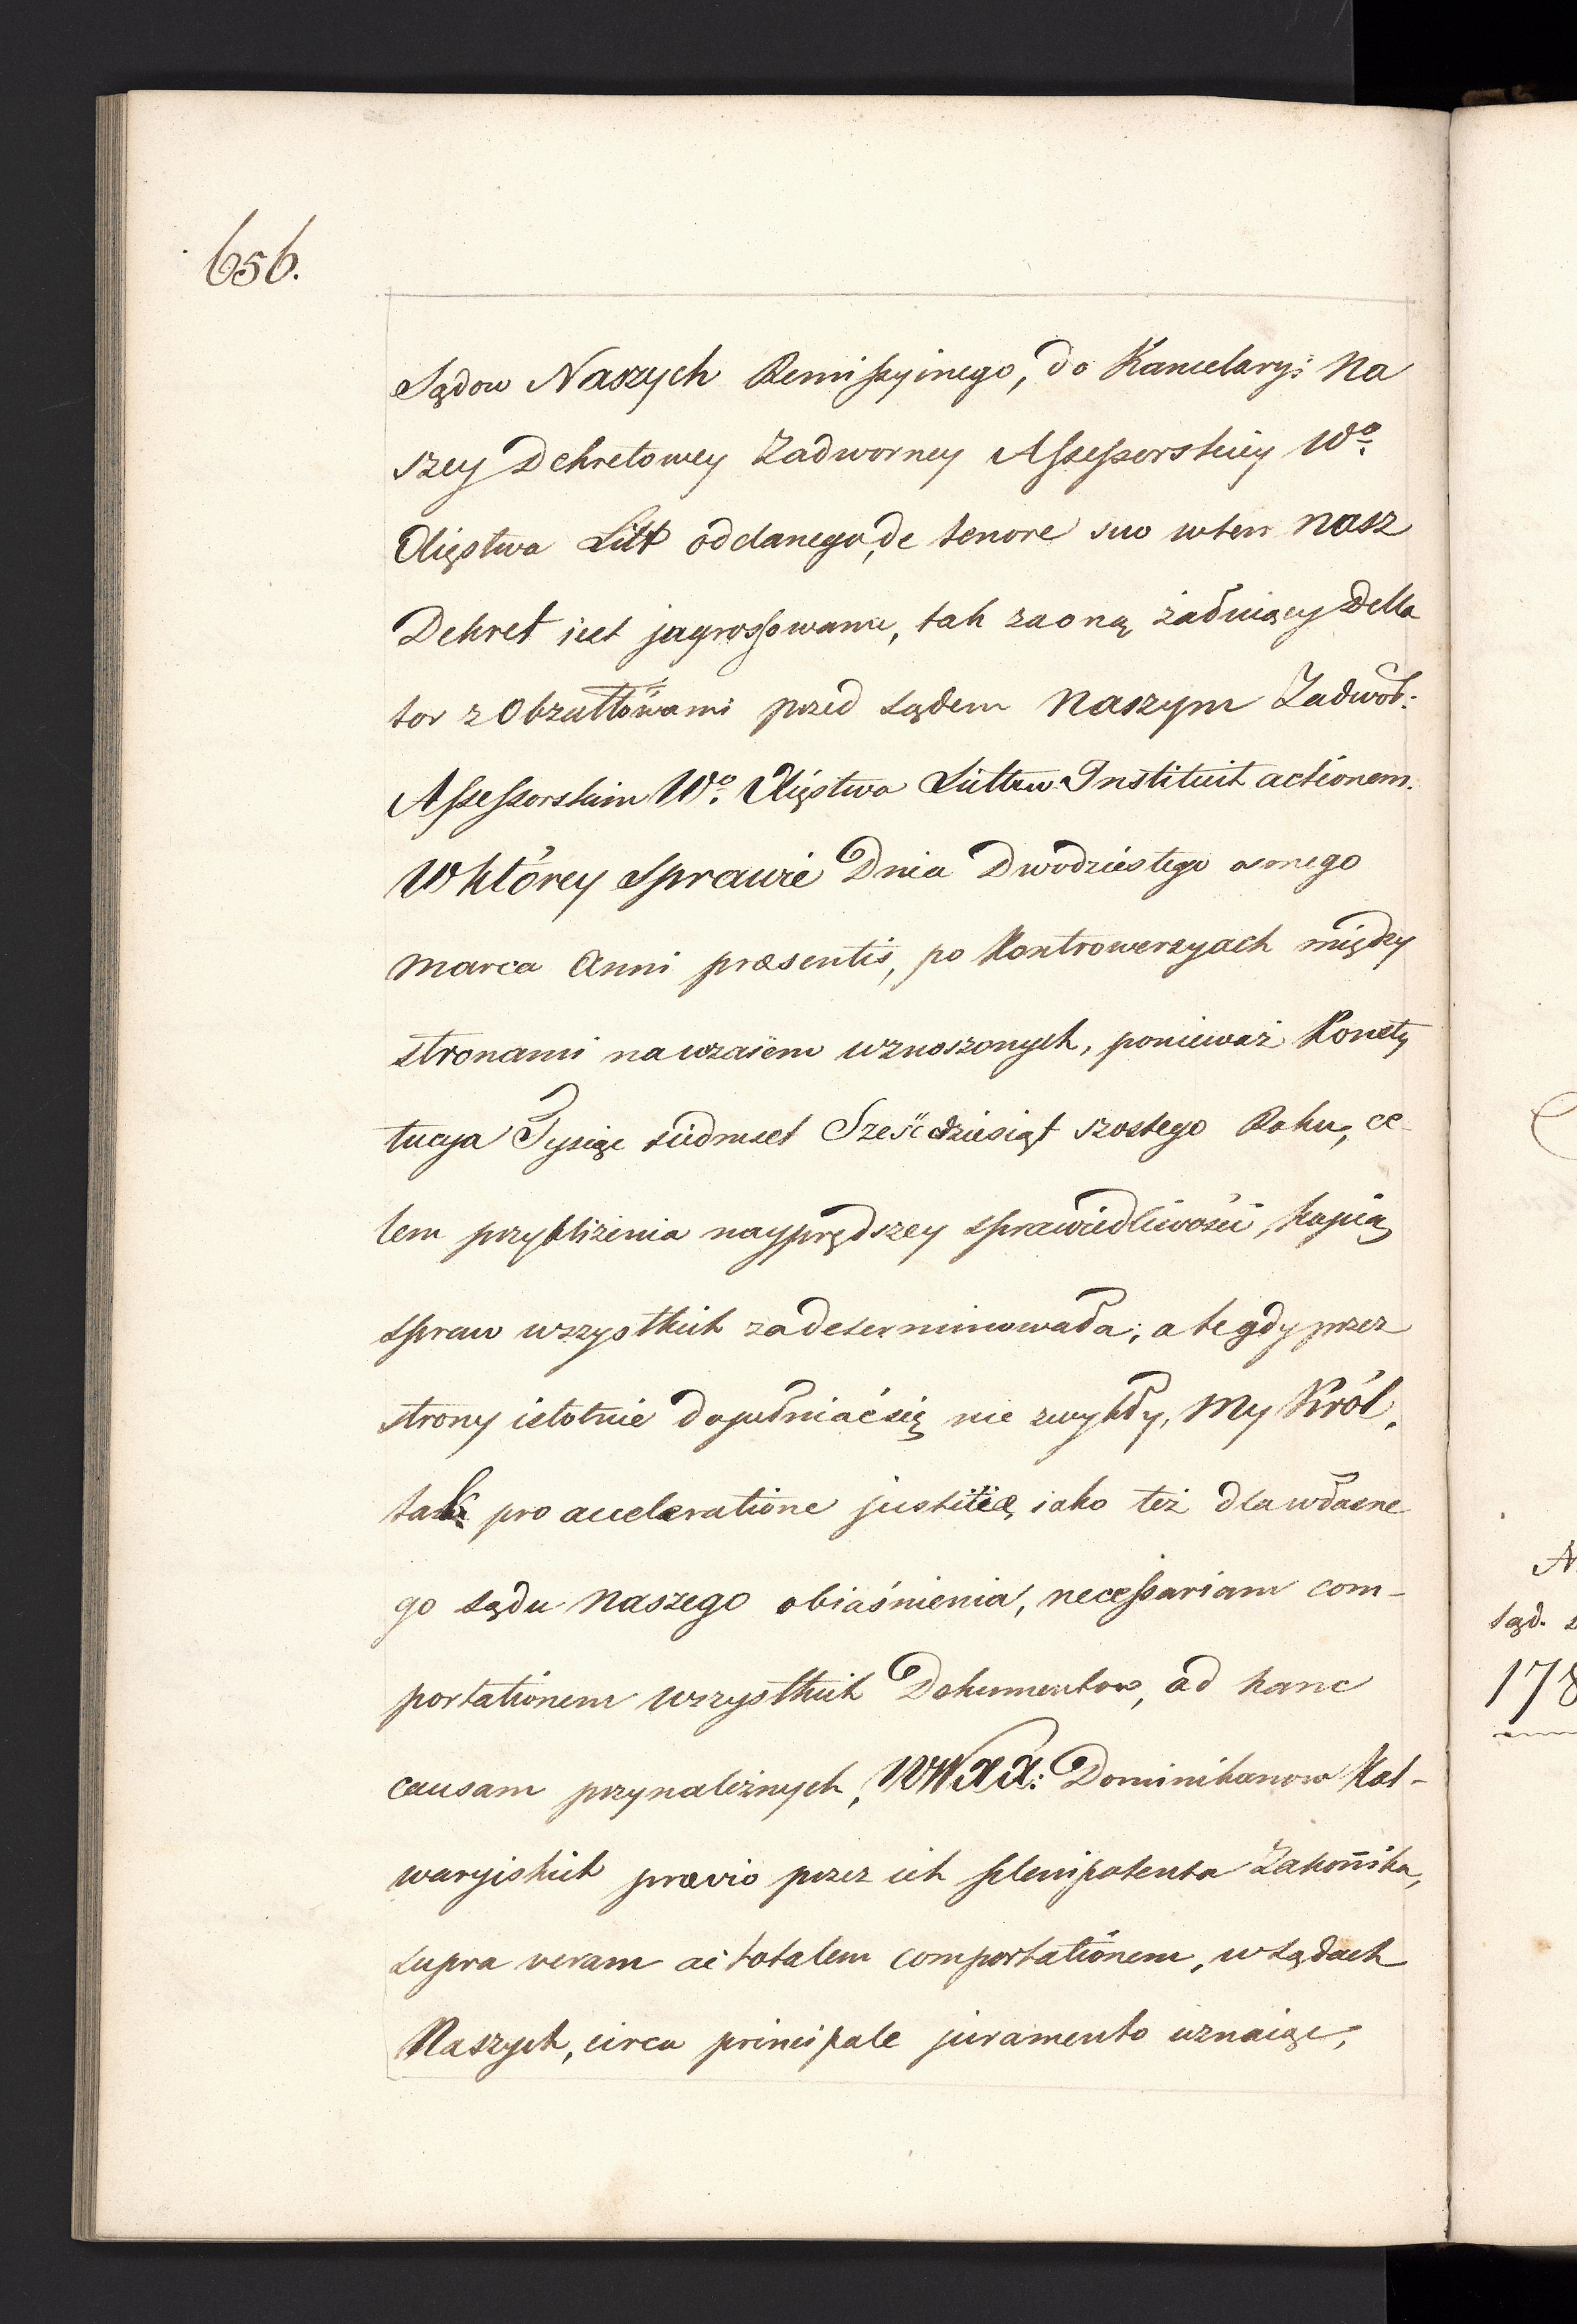 656.
Sądow Naszych Remissyinego, do Kancelaryi Na
szey Dekretowey Zadworney Assessorskiey Wº.
Xięstwa Litt oddanego, de tenore suo w ten nasz
Dekret iest jngrossowane, tak za oną żałuiący Della
tor z Obżałłowami przed sądem Naszym Zadwor:
Assessorskim Wº. Xięstwa Litten Instituit actionem.
W którey sprawie Dnia Dwódziestego osmego
Marca Anni præsentis, po Kontrowersyach między
stronami nawzaiem wznoszonych, ponieważ Konsty
tucya Tysiąc siedmset Sześćdziesiąt szostego Roku, ce
lem przybliżenia nayprędszey sprawiedliwości, kopią
spraw wszystkich zadeterminowała; a te gdy przez
strony istotnie dopełniać się nie zwykły, My Król,
tak pro acceleratione justitiæ, iako też dla własne
go sądu Naszego obiaśnienia, necessariam com-
portationem wszystkich Dokumentow, ad hanc
causam przynależnych, WW XX: Dominikanow Kal-
waryiskich prævio przez ich plenipotenta Zakonnika,
supra veram ac totalem comportationem, w sądach
Naszych, circa principale juramento uznaiąc,
A
sąd.
178